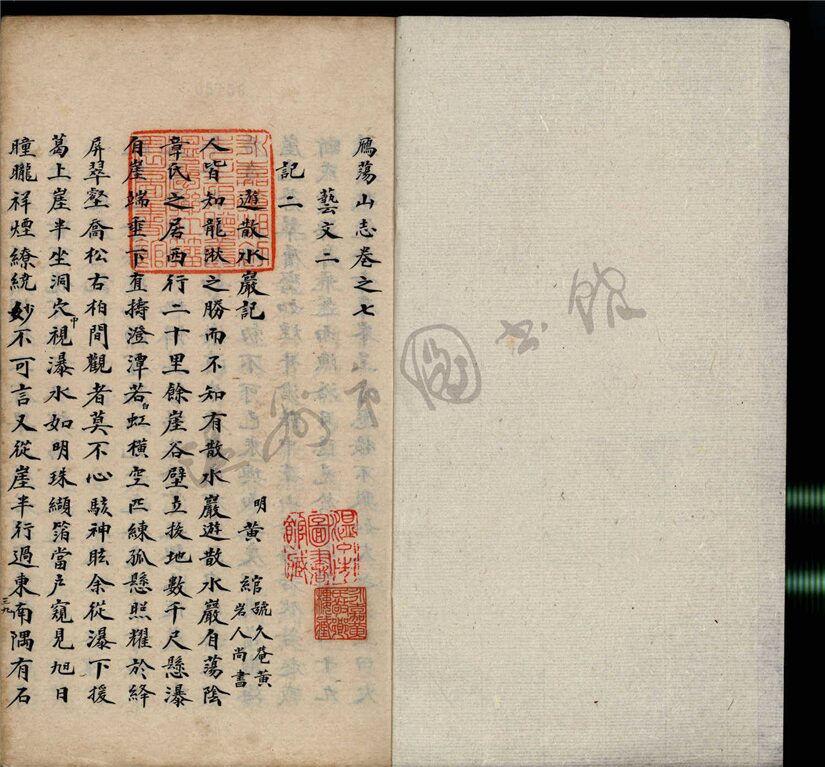 鴈蕩山志卷之七
藝文二
記二
遊散水巖記
明黃綰號久菴黃
岩人尚書
人皆知龍湫之勝而不知有散水巖遊散水巖自蕩陰
章氏之居西行二十里餘崖谷壁立拔地數千尺懸瀑
自崖端垂下直擣澄潭若白虹橫空匹練孤懸照耀於絳
屏翠壑喬松古柏間觀者莫不心駭神眩余從瀑下援
葛上崖半坐洞穴中視瀑水如明珠纈箔當户窺見旭日
瞳曨祥煙繚繞妙不可言又從崖半行過東南隅有石
溫州市
圖書
館藏
圖書館